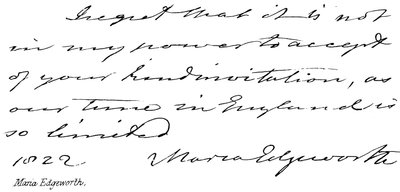 I regret that it is not
in my power to accept
of your kind invitation, as
our time in England is
so limited
1822. Maria Edgeworth
Maria Edgeworth.